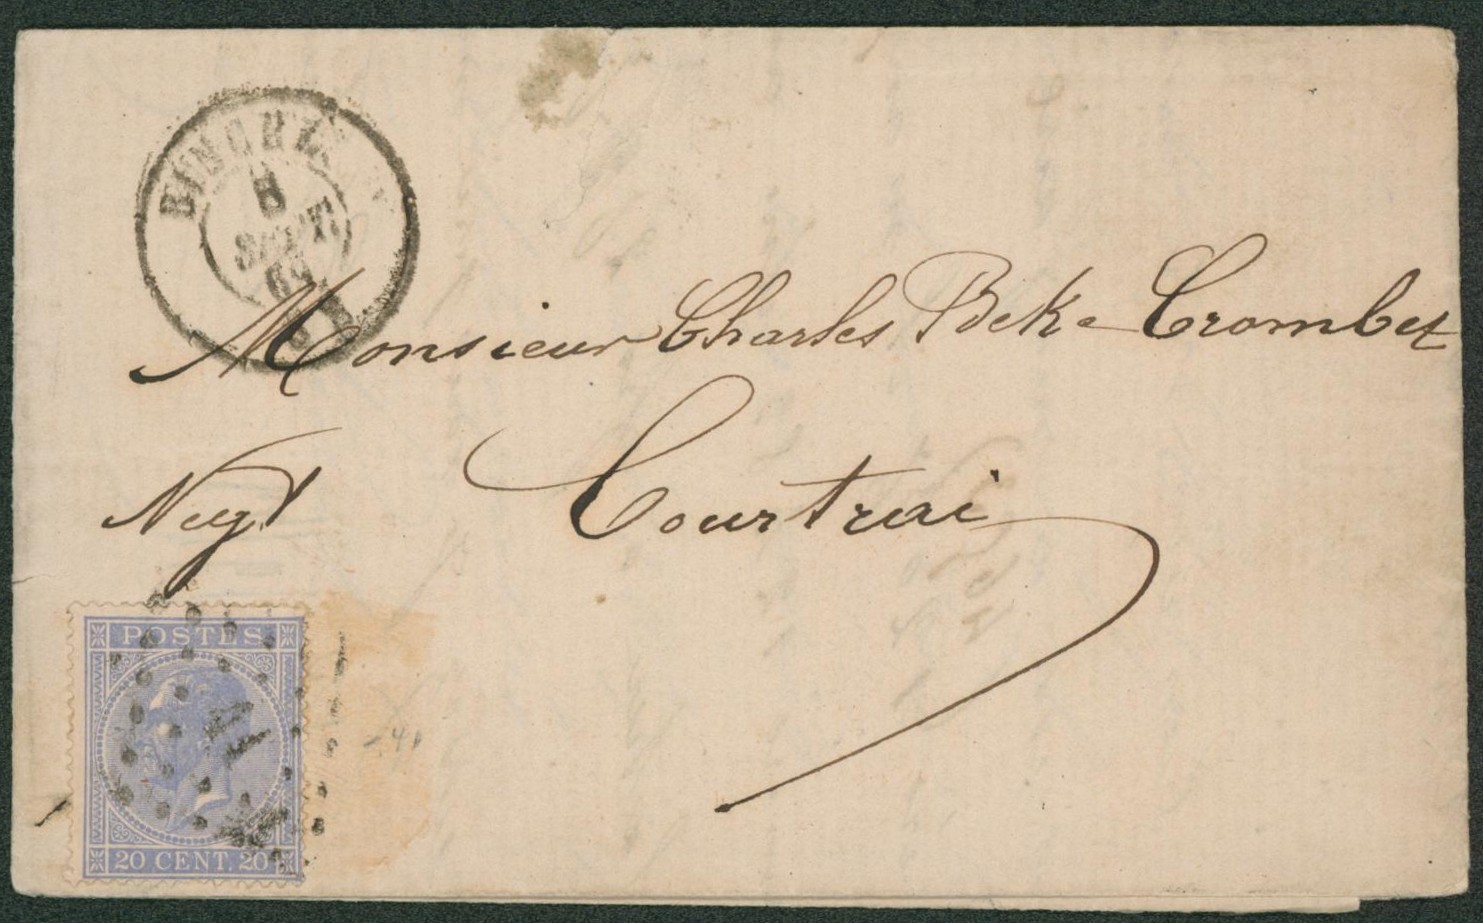 BINCHE
8
SEPT.
69
Monsieur Charles Beke Crombet
Negt Courtrai
POSTES
20 CENT. 20